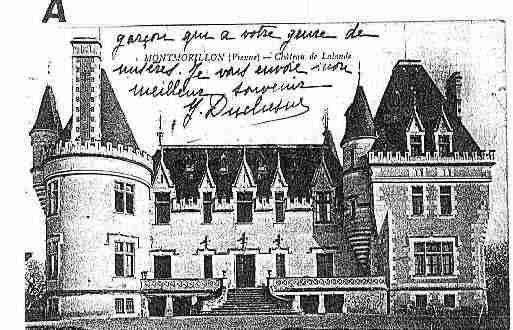 A
garçon qui a votre genre de
MONTMORILLON (Vienne) — Château de Lalande
misères. Je vous envoie mon
meilleur souvenir